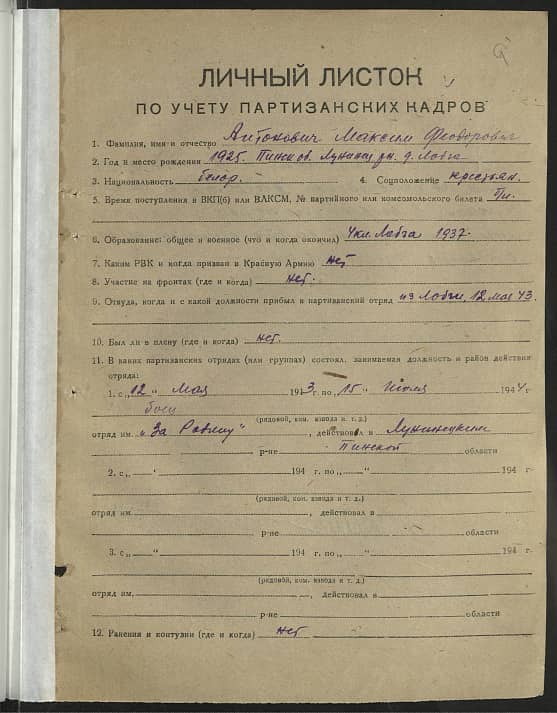 ЛИЧНЫЙ ЛИСТОК
ПО УЧЕТУ ПАРТИЗАНСКИХ КАДРОВ
1. Фамилия, имя и отчество Антонович Максим Феодорович
2. Год и место рождения 1925. Пинск об. Лунинец рн. д. Лобча
3. Национальность белор. 4. Соцположение крестьян.
5. Время поступления в ВКП(б) или ВЛКСМ, № партийного или комсомольского билета
6. Образование: общее и военное (что и когда окончил) 4 кл. Лобча 1937.
7. Каким РВК и когда призван в Красную Армию нет
8. Участие на фронтах (где и когда) нет.
9. Откуда, когда и с какой должности прибыл в партизанский отряд из Лобчи, 12 мая 43.
10. Был ли в плену (где и когда) нет.
11. В каких партизанских отрядах (или группах) состоял, занимаемая должность и район действия
отряда:
1. с „12" мая 1943 г. по „15" июля 1944 г.
боец
(рядовой, ком. взвода и т. д.)
отряд им. „За Родину", действовал в Лунинецком
р-не Пинской области
2. с „ " 194 г. по „ " 194 г.
(рядовой, ком. взвода и т. д.)
отряд им. , действовал в
р-не области
3. с „ " 194 г. по „ " 194 г.
(рядовой, ком. взвода и т. д.)
отряд им. , действовал в
р-не области
12. Ранения и контузии (где и когда) нет